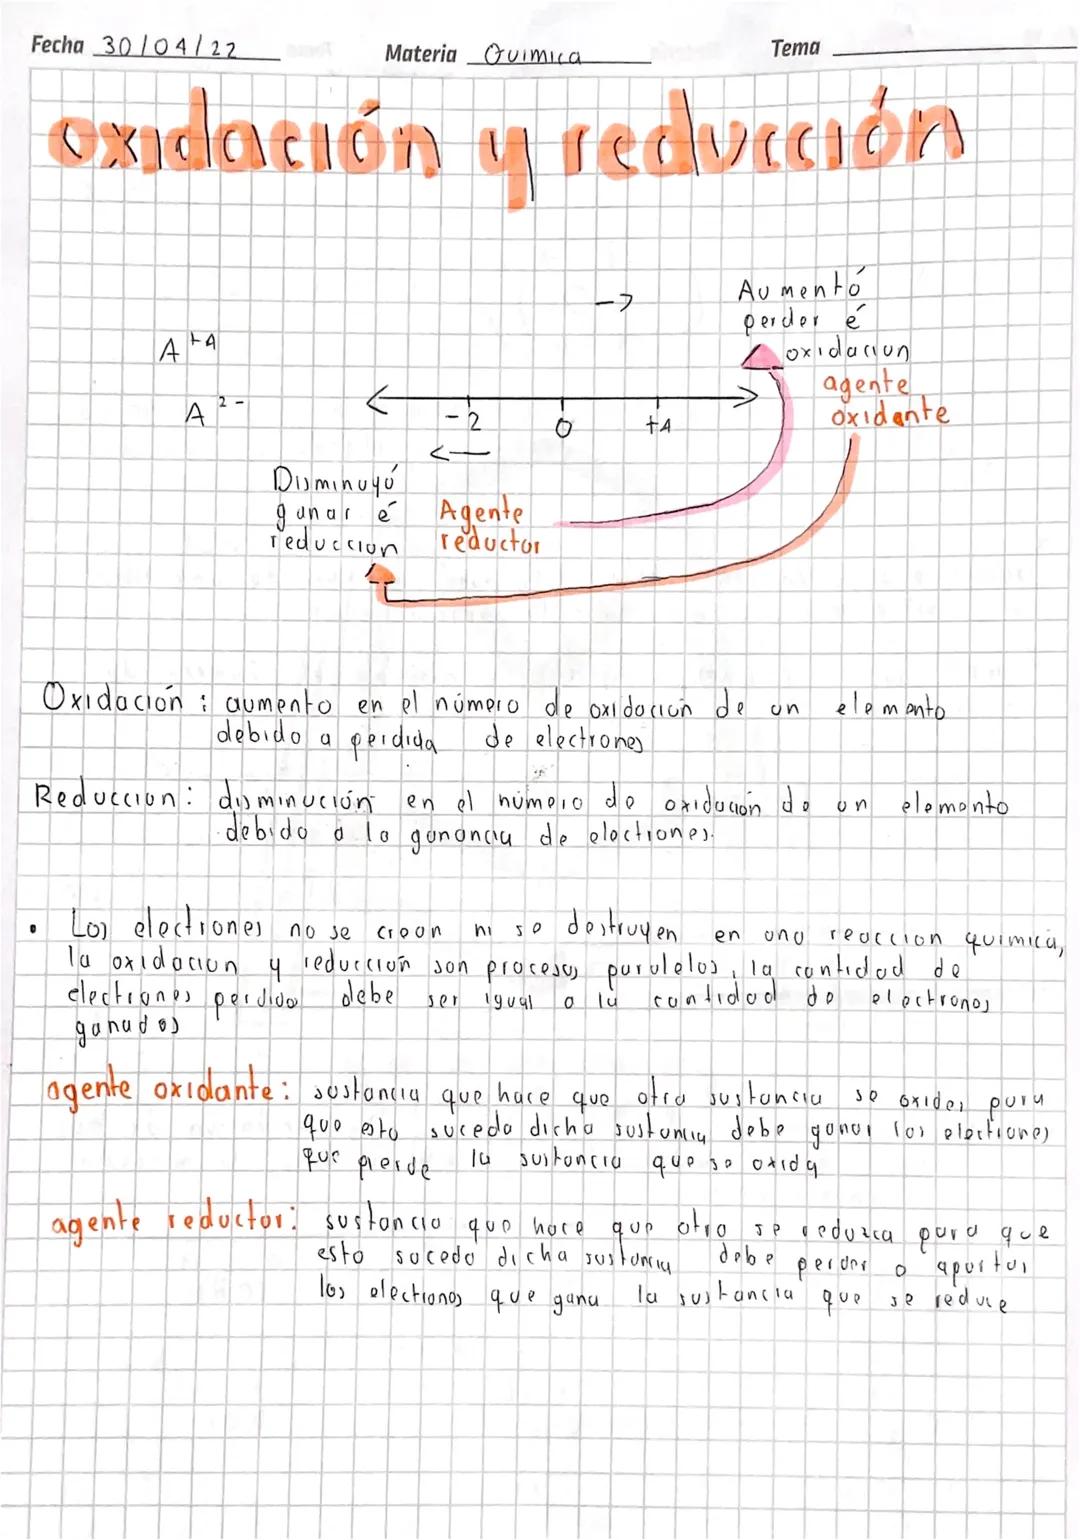 Fecha 30/04/22 Materia Quimica Tema
oxidación y reducción
->
Aumentó
perder é
oxidacion
agente
oxidante
A +4
A 2-
-2 0 +4
<—
Disminuyó
ganar é
reduccion
Agente
reductor
Oxidación: aumento en el número de oxidación de un elemento
debido a perdida de electrones
Reduccion: disminución en el número de oxidación de un elemento
debido a la ganancia de electrones.
• Los electrones no se crean ni se destruyen en una reaccion quimica,
la oxidacion y reducción son procesos paralelos, la cantidad de
electrones perdido debe ser igual a la cantidad de electrones
ganados
agente oxidante: sustancia que hace que otra sustancia se oxide, para
que esto suceda dicha sustancia debe ganar los electrones
que pierde la sustancia que se oxida
agente reductor: sustancia que hace que otra se reduzca para que
esto suceda dicha sustancia debe perder o aportar
los electrones que gana la sustancia que se reduce